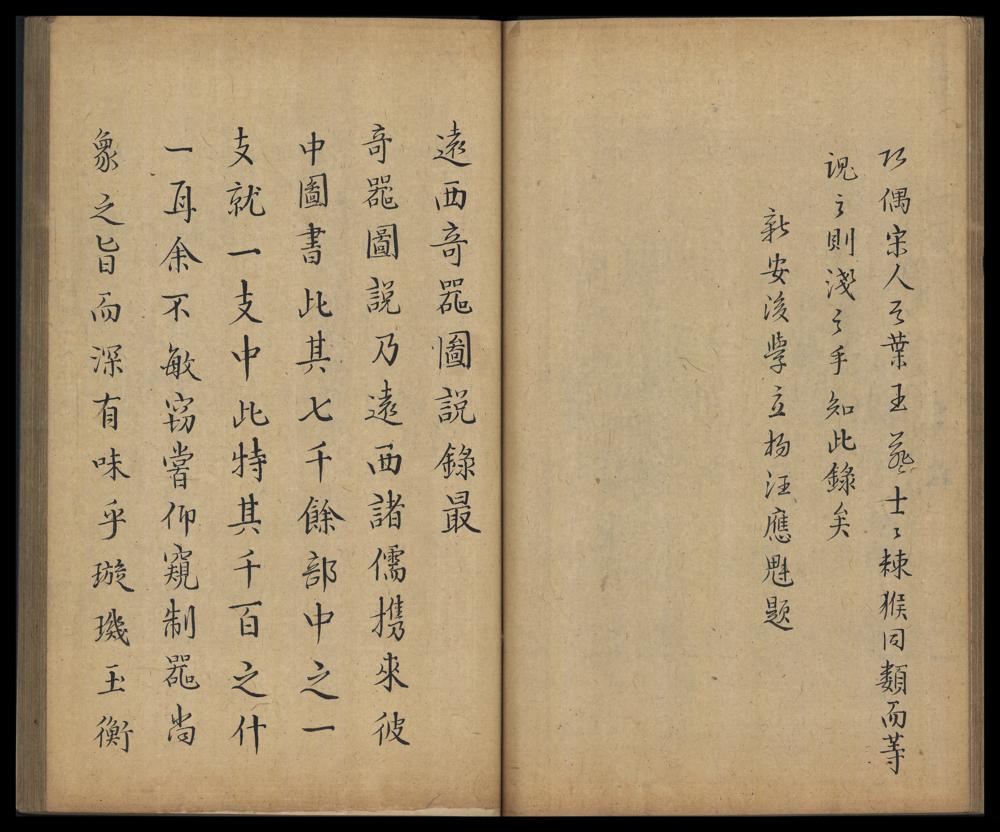 巧偶宋人之葉王爾士〻棘猴同類而等
視之則淺之乎知此錄矣
新安後學立扬汪應魁題
遠西奇噐圖說錄最
奇噐圖說乃遠西諸儒携來彼
中圖書此其七千餘部中之一
支就一支中此特其千百之什
一耳余不敏窃嘗仰窺制噐尚
象之旨而深有味乎璇璣玉衡